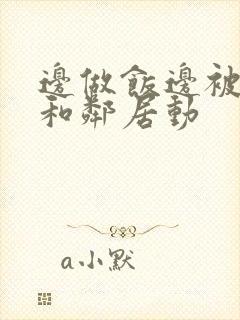 邊做飯邊被
和鄰居動
a小默